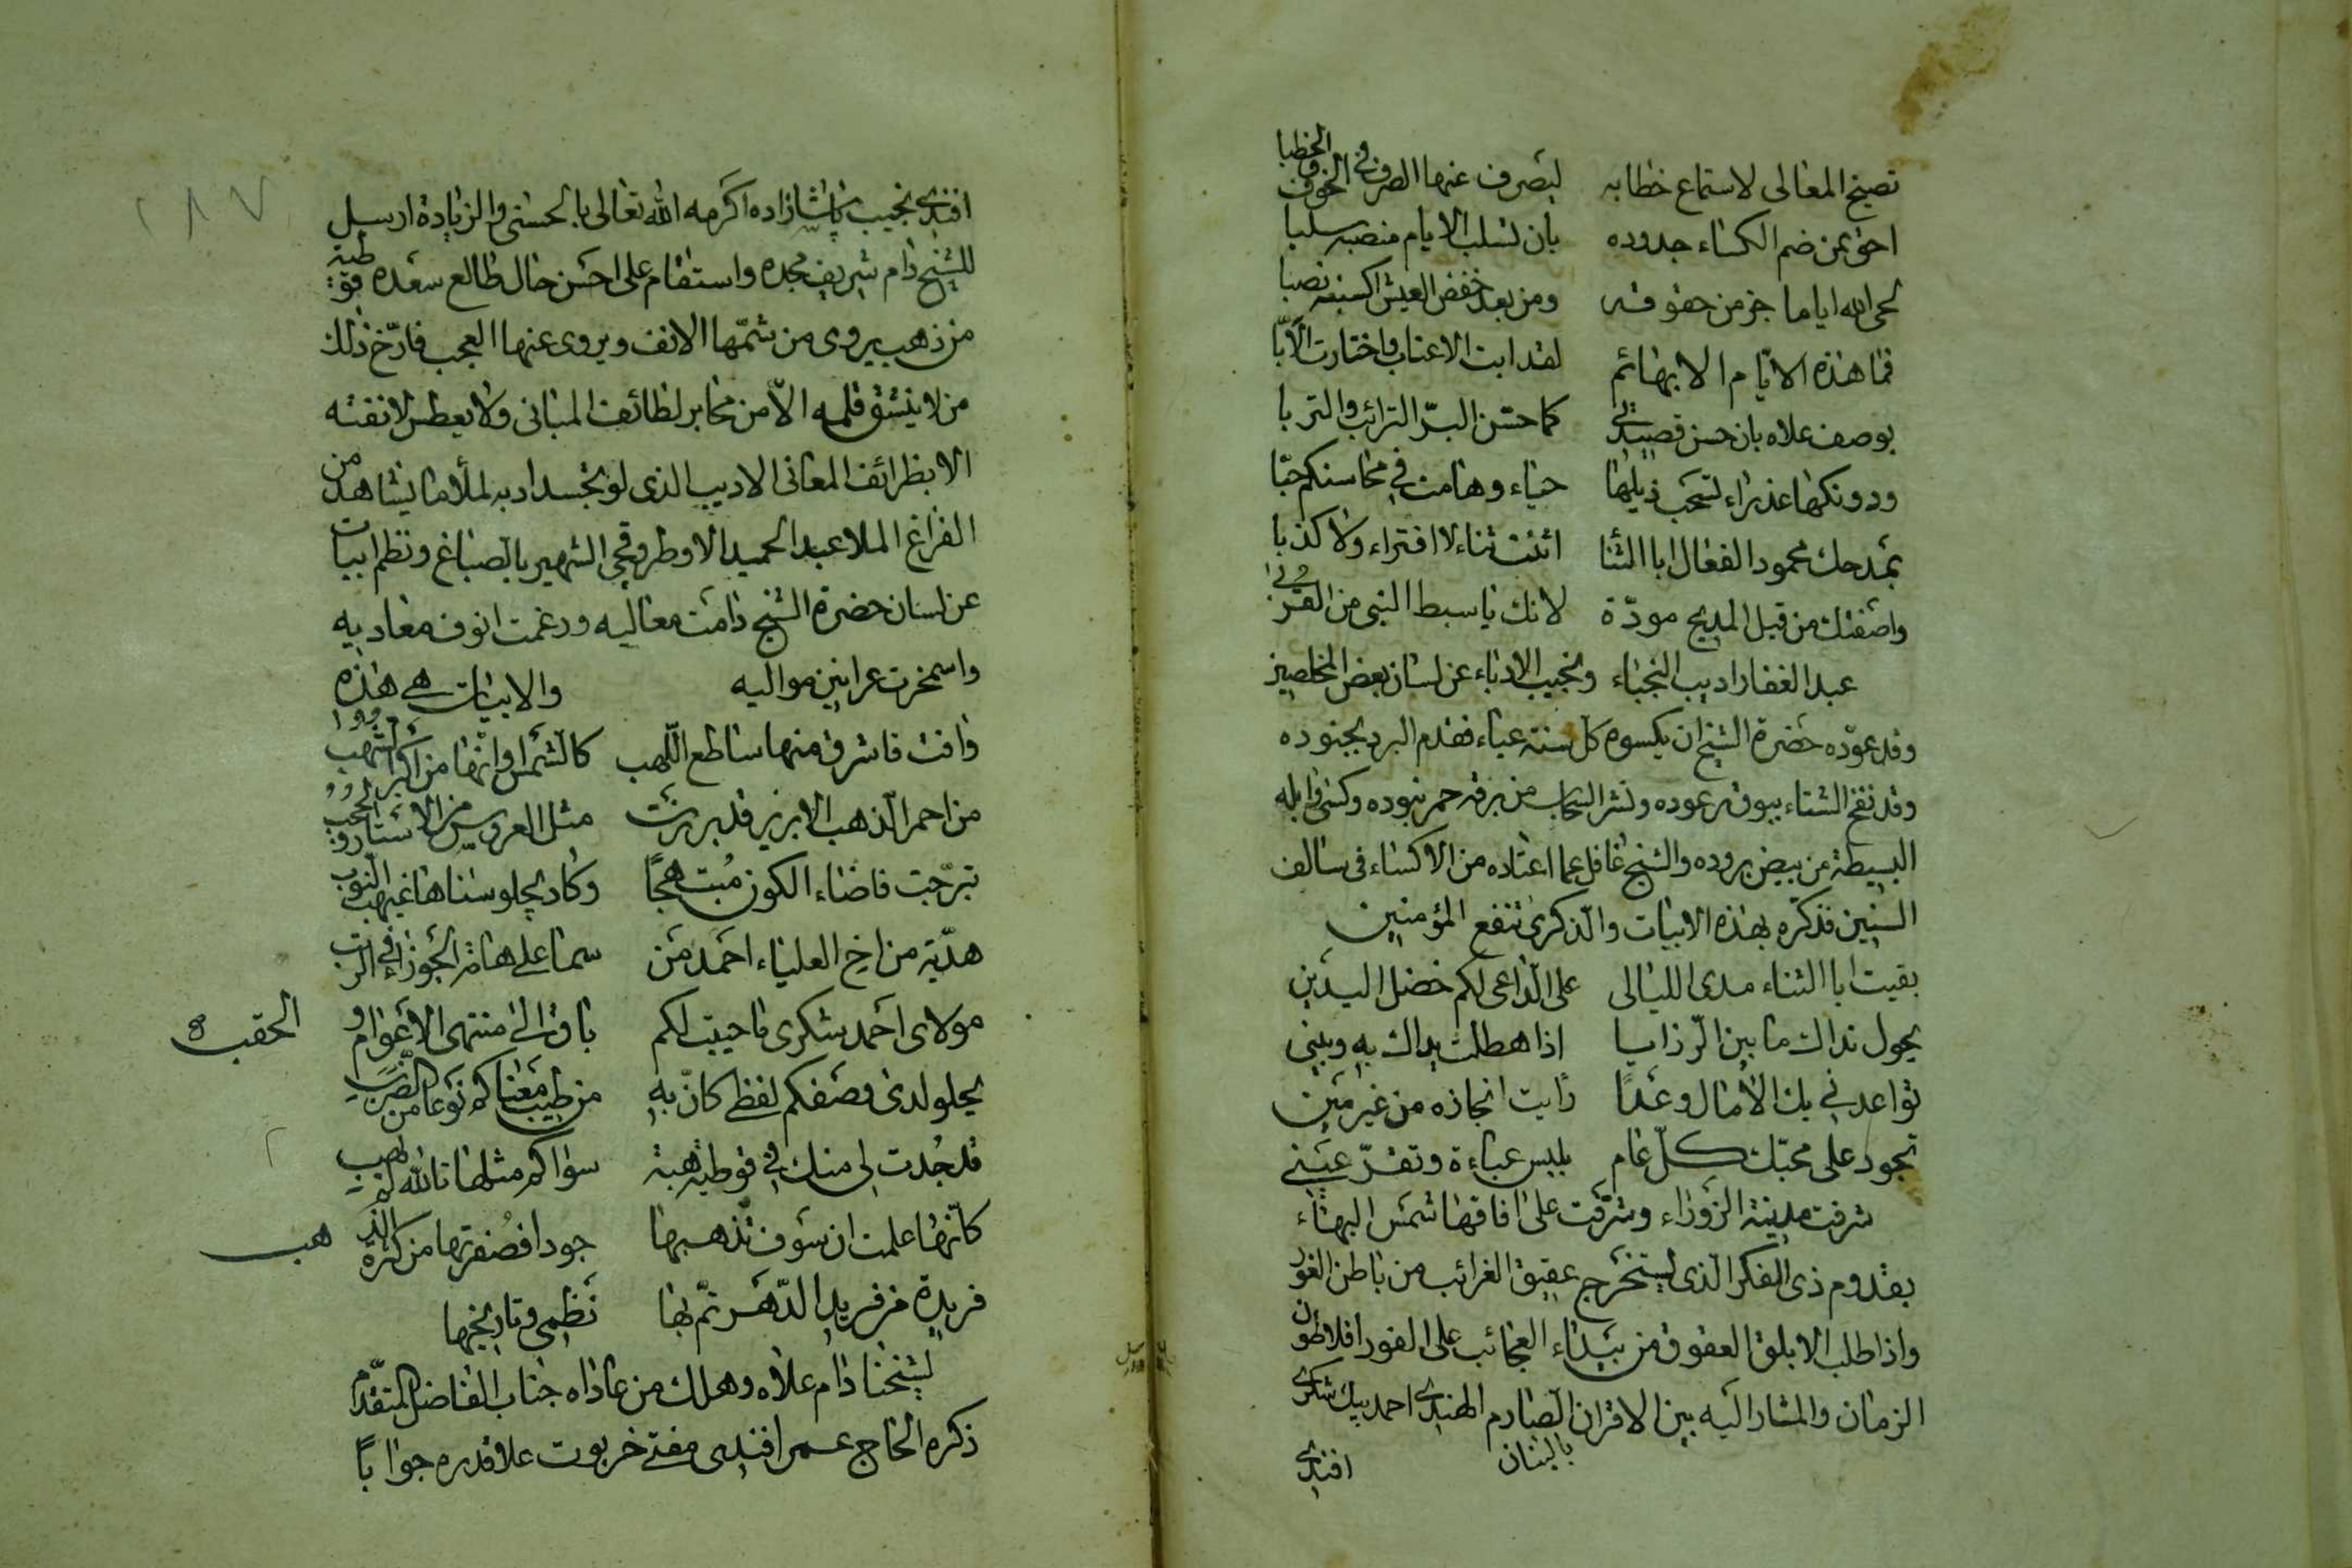 تصيخ المعالى لاستماع خطابه ليصرف عنها الصرف والخوف والخطبا
احق بمن ضم الكساء جدوده بان تسلب الايام منصبه سلبا
لحى الله اياما خر من حقوقه ومن بعد خفض العيش اكسبنه نصبا
فما هذه الايّام الا بهائم لقد ابت الاعناب واختارت الأبّا
بوصف علاه بان حسن قصيدتى كما حسّن البدر الترائب والتربا
ودونكها عذراء تسحب ذيلها حياء وهامت فى محاسنكم حبّا
بمدحك محمود الفعال ابا الثنا اثنت ثناء لا افتراء ولا كذبا
واصفتك من قبل المديح مودّة لانك يا سبط النبى من القربى
عبد الغفار اديب النجباء ونجيب الادباء عن لسان بعض المخلصين
وقد عوّده حضرة الشيخ ان يكسوه كل سنة عباء فقدم البرد بجنوده
وقد نفخ الشتاء ببوق رعوده ونشر السحاب من برقه حمر بنوده وكسى وابله
البسيطة من بيض بروده والشيخ غافل عما اعتاده من الاكساء فى سالف
السنين فذكّره بهذه الابيات والذكرى تنفع المؤمنين
بقيت ابا الثناء مدى الليالى على الداعى لكم خضل اليدين
يحول نداك ما بين الرزايا اذا هطلت يداك به وبينى
تواعدنى بك الأمال وعدًا رأيت انجازه من غير مين
تجود على محبّك كلّ عام بلبس عباءة وتقرّ عينى
شرفت مدينة الزوراء وشرّقت على افاقها شمس البهاء
بقدوم ذى الفكر الذى يستخرج عقيق الغرائب من باطن الغور
واذا طلب الابلق العقوق من بيداء العجائب على الفور افلاطون
الزمان والمشار اليه بين الاقران بالبنان الصارم الهندى احمد بيك شكرى
افندى
افندى نجيب پاشا زاده اكرمه الله تعالى بالحسنى والزيادة ارسل
للشيخ دام شريف مجده واستقام على احسن حال طالع سعده قوطية
من ذهب يروى من شمّها الانف ويروى عنها العجب فارّخ ذلك
من لا ينشق قلمه الاّ من محابر لطائف المبانى ولا يعطس لانفته
الا بظرائف المعانى الاديب الذى لو تجسد ادبه لملأ ما يشاهد من
الفراغ الملا عبد الحميد الاوطرقجى الشهير بالصباغ ونظم ابيات
عن لسان حضرة الشيخ دامت معاليه ورغمت انوف معاديه
واسمخرت عرانين مواليه والابيات هى هذه
وافت فاشرق منها ساطع اللّهب كالشمس وانّها من اكبر الشهب
من احمر الذهب الابريز قد برزت مثل العروس من الاستار والحجب
تبرّجت فاضاء الكون مُبتهجًا وكاد يجلو سناها غيهب النوب
هديّة من اخ العلياء احمد من سما على هامة الجوزاء فى الرتب
مولاى احمد شكرى ما حييت لكم باق الى منتهى الاعوام و الحقب
يحلو لدى وصفكم لفظى كان به من طيب معناكم نوعا من الضرب
قد جُدت لى منك فى قوطية هبة سواكم مثلها تالله لم يهب
كانّها علمت ان سوف تذهبها جودا فصُفرتها من كثرة الذ هب
فريدة من فريد الدّهر تمّ بها نظمى وتاريخها
لشيخنا دام علاه وهلك من عاداه جناب الفاضل المتقدّم
ذكره الحاج عمر افندى مفتى خربوت علا قدره جوابًا
١٨٧